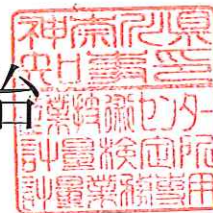 神奈川県
知事印
産業技術センター
計量検定所
計量業務専用
治